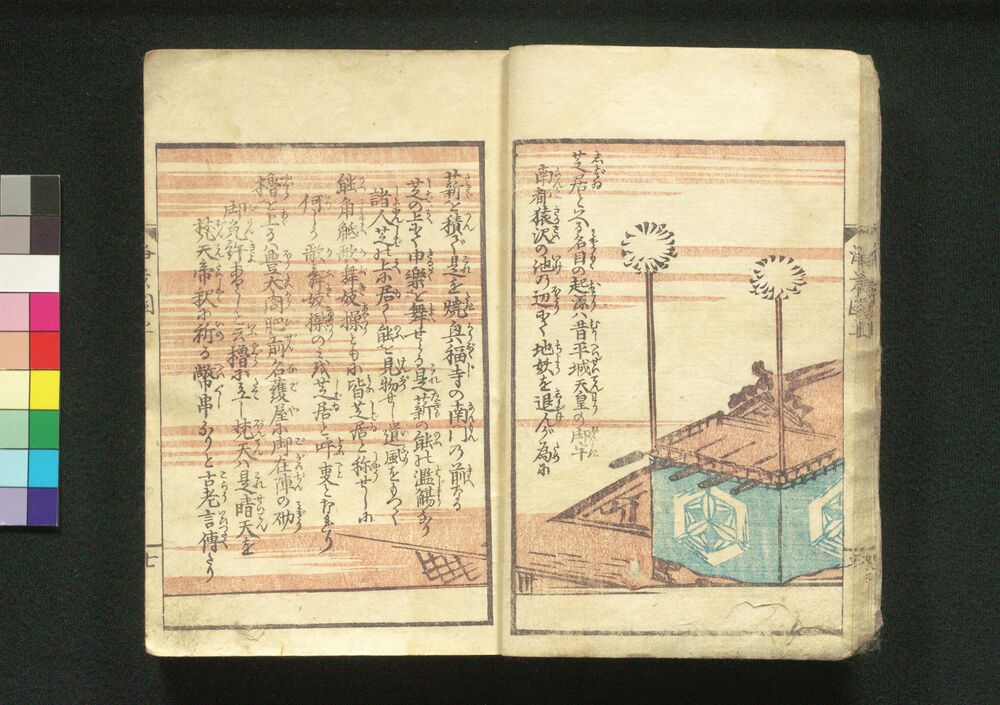 芝居といへる名目の起源ハ昔平城天皇の御宇
南都猿沢の池の辺にて地妖を退んが為に
薪を積て是を焼興福寺の南門の前なる
芝の上にて申樂を舞せらる是薪の能の濫觴なり
諸人芝の上に居て能を見物せし遺風をもつて
能角觝歌舞妓操ともに皆芝居と称せしに
何よりか歌舞妓操のミを芝居と呼事となれり
櫓を上るハ豊大閤肥前名護屋に御在陣の砌
御免許ありしと云櫓に立し梵天ハ是晴天を
梵天帝釈に祈る幣串なりと古老言傳たり